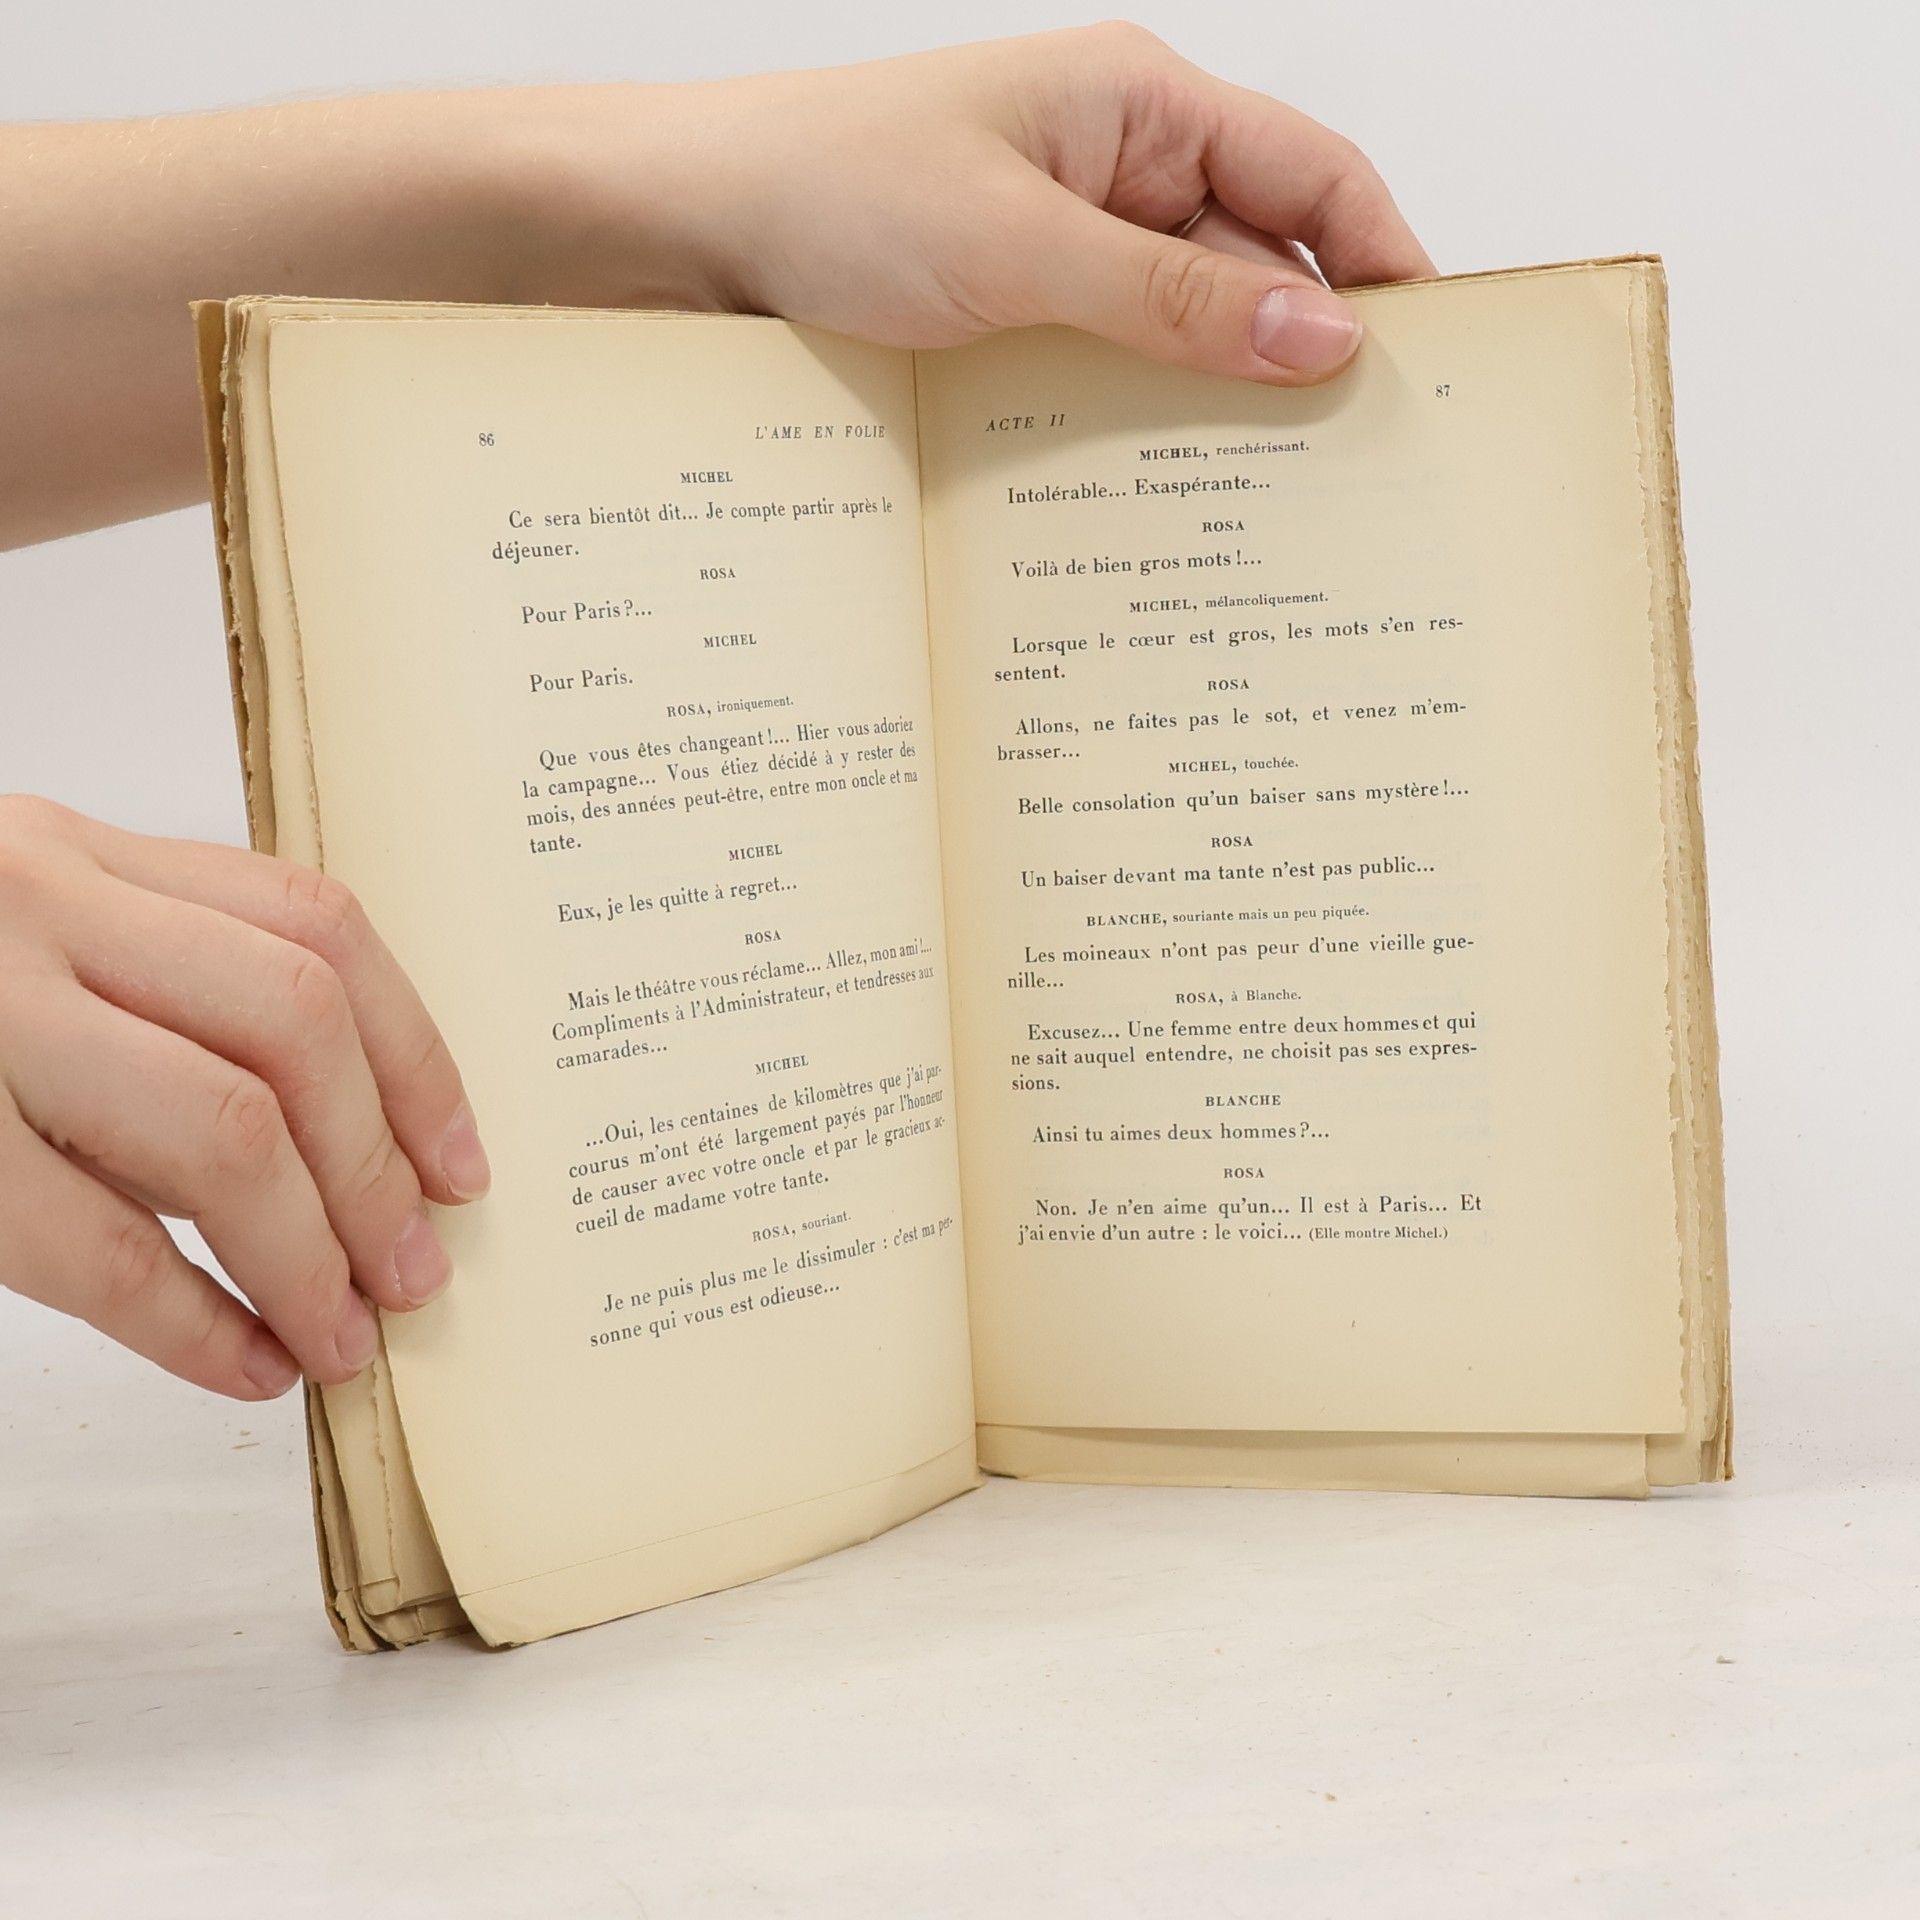 86 L'AME EN FOLIE
MICHEL
Ce sera bientôt dit... Je compte partir après le
déjeuner.
ROSA
Pour Paris ?...
MICHEL
Pour Paris.
ROSA, ironiquement.
Que vous êtes changeant !... Hier vous adoriez
la campagne... Vous étiez décidé à y rester des
mois, des années peut-être, entre mon oncle et ma
tante.
MICHEL
Eux, je les quitte à regret...
ROSA
Mais le théâtre vous réclame... Allez, mon ami !...
Compliments à l'Administrateur, et tendresses aux
camarades...
MICHEL
...Oui, les centaines de kilomètres que j'ai par-
courus m'ont été largement payés par l'honneur
de causer avec votre oncle et par le gracieux ac-
cueil de madame votre tante.
ROSA, souriant.
Je ne puis plus me le dissimuler : c'est ma per-
sonne qui vous est odieuse...
ACTE II 87
MICHEL, renchérissant.
Intolérable... Exaspérante...
ROSA
Voilà de bien gros mots !...
MICHEL, mélancoliquement.
Lorsque le cœur est gros, les mots s'en res-
sentent.
ROSA
Allons, ne faites pas le sot, et venez m'em-
brasser...
MICHEL, touchée.
Belle consolation qu'un baiser sans mystère !...
ROSA
Un baiser devant ma tante n'est pas public...
BLANCHE, souriante mais un peu piquée.
Les moineaux n'ont pas peur d'une vieille gue-
nille...
ROSA, à Blanche.
Excusez... Une femme entre deux hommes et qui
ne sait auquel entendre, ne choisit pas ses expres-
sions.
BLANCHE
Ainsi tu aimes deux hommes ?...
ROSA
Non. Je n'en aime qu'un... Il est à Paris... Et
j'ai envie d'un autre : le voici... (Elle montre Michel.)